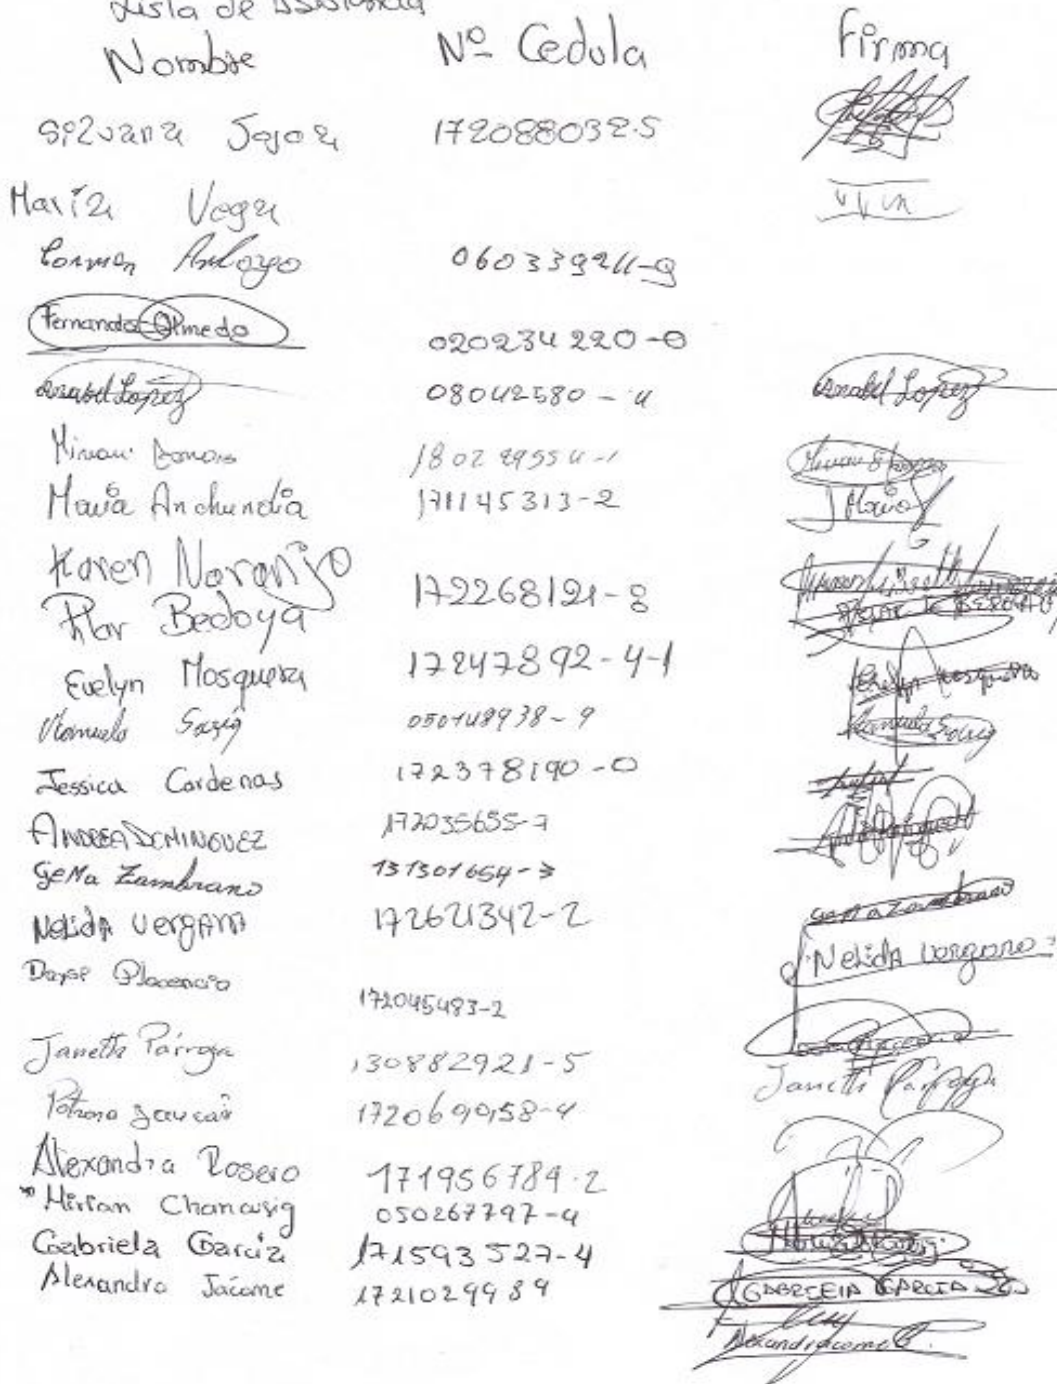 Lista de Asistencia
Nombre Nº Cedula Firma
Silvana 172088032-5
María Vega
Carmen Arroyo 060339211-9
Fernanda Olmedo 020234220-0
Anabel Lopez 08042580-4 Anabel Lopez
Miriam 180229554-1 Miriam
Maria Anchundia 171145313-2 Maria
Karen Naranjo
Pilar Bedoya 172268121-8 PILAR BEDOYA
Evelyn Mosquera 17247892-4-1 Evelyn Mosquera
Manuela Sasig 050148938-9 Manuela Sasig
Jessica Cardenas 172378190-0
ANDREA DOMINGUEZ 172035655-7
GeMa Zambrano 131301654-3 GeMa Zambrano
NeLidA VergArA 172621342-2 NeLidA Vergara
Dayse Placencia 172045483-2
Janeth Párraga 130882921-5 Janeth Párraga
172069058-4
Alexandra Rosero 171956784-2
Mirian Chanasig 050267797-4
Gabriela García 171593527-4 GABRIELA GARCIA
Alexandra Jácome 1721029989 Alexandra Jacome